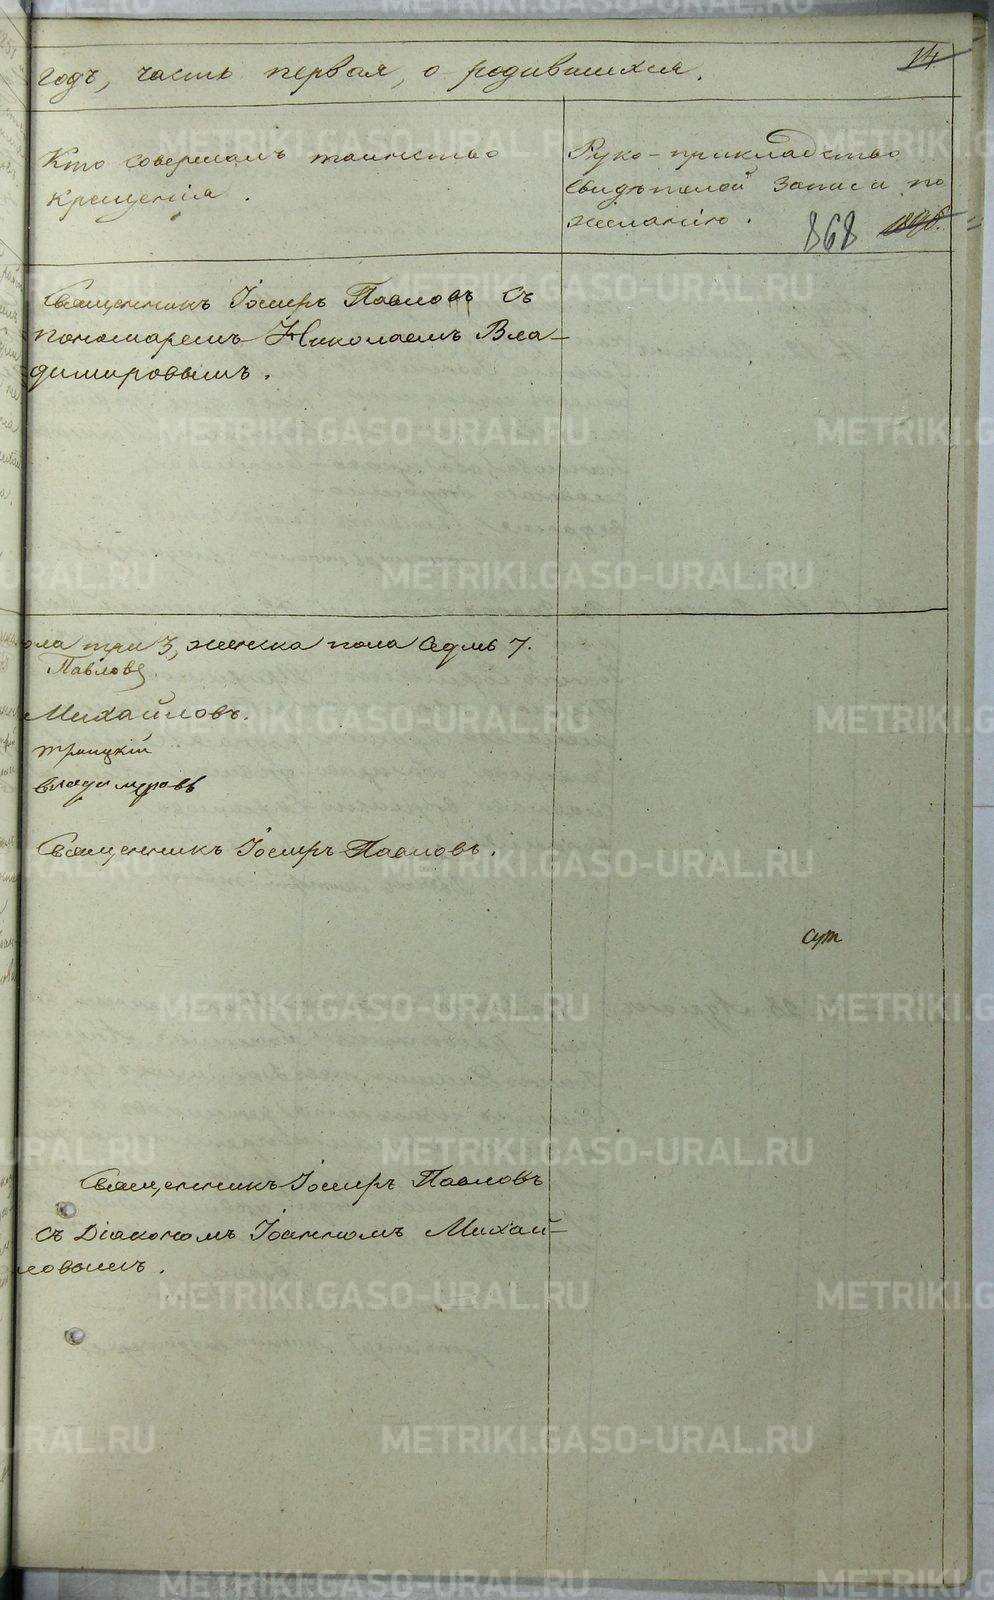 14
годъ, часть первая, о родившихся.
Кто совершалъ таинство
крещенія.
Руко-прикладство
свидѣтелей записи по
желанію.
868
Священникъ Іосифъ Павловъ съ
пономаремъ Николаемъ Вла-
димировымъ.
ола три 3, женска пола седмь 7.
Павловъ.
Михайловъ.
Троицкій
Владимировъ
Священникъ Іосифъ Павловъ.
Священникъ Іосифъ Павловъ
съ Діакономъ Іоанномъ Михай-
ловымъ.
METRIKI.GASO-URAL.RU